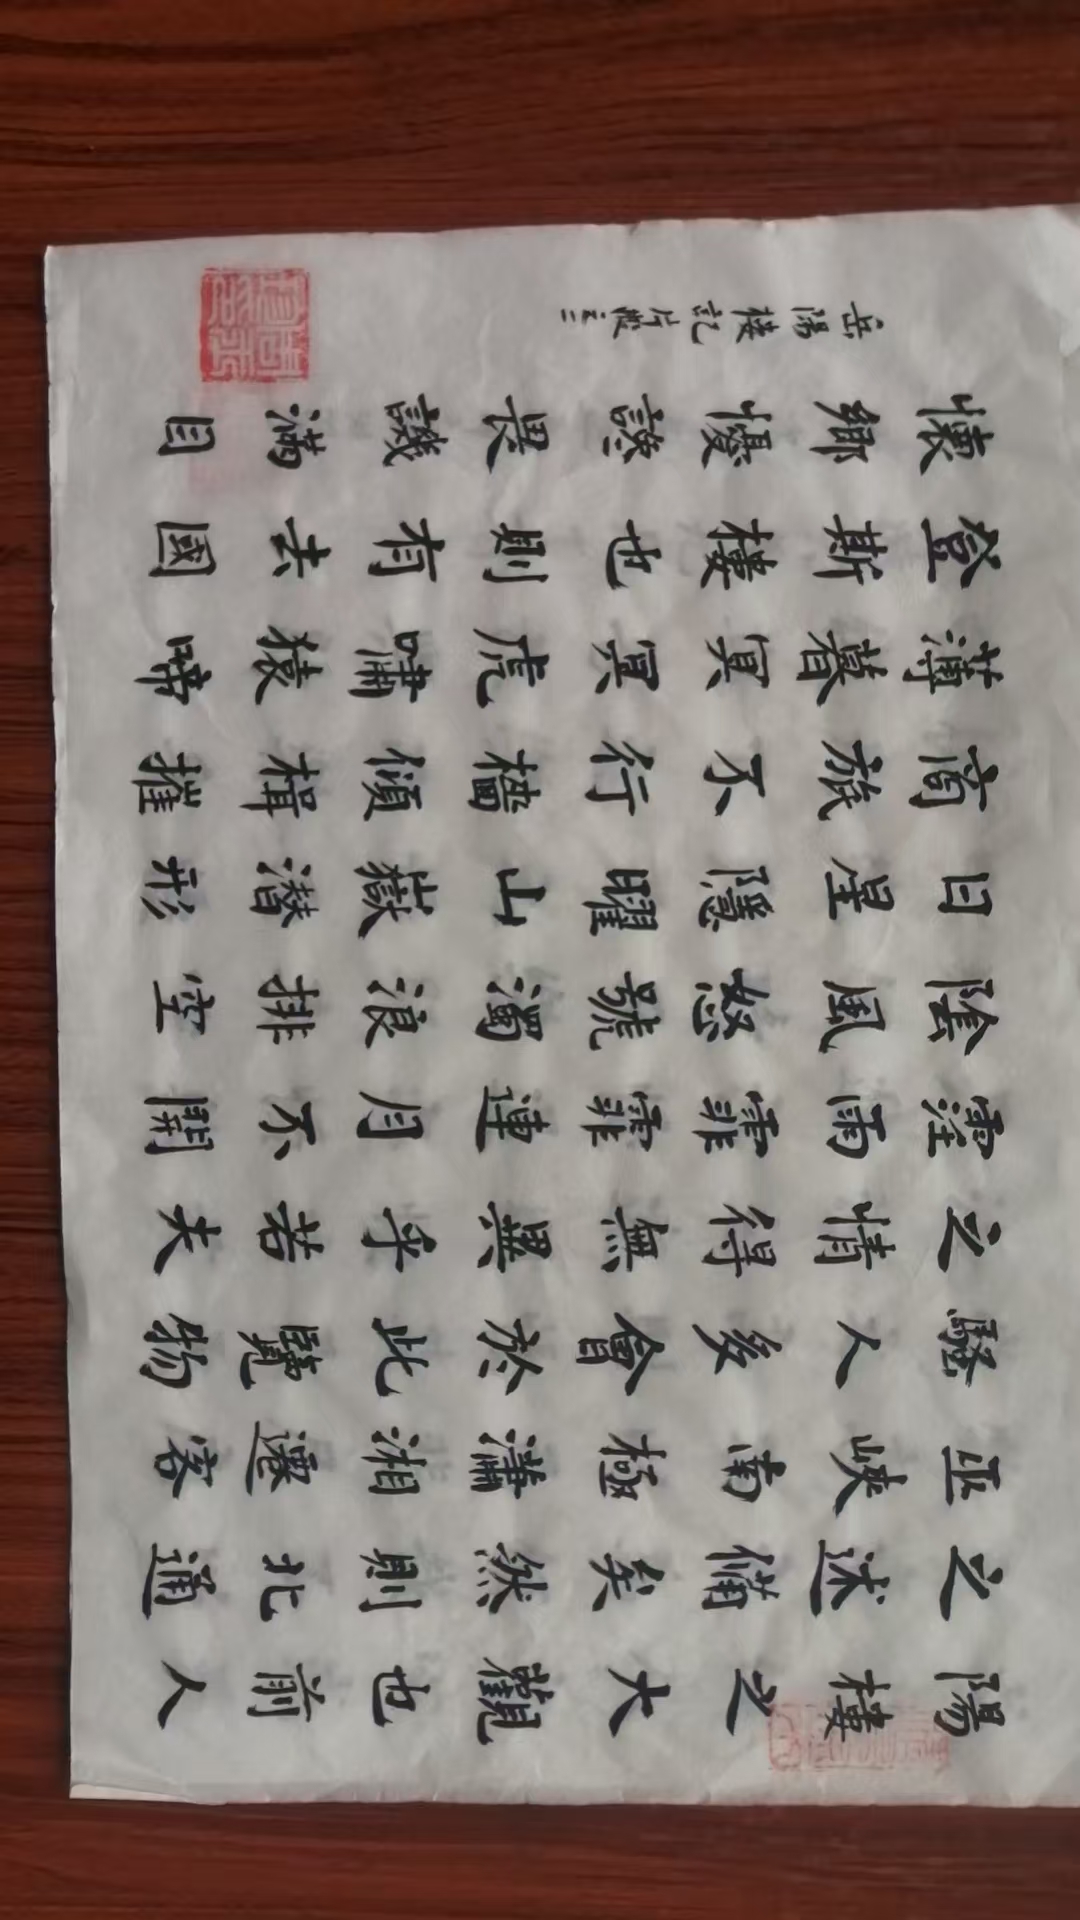 陽樓之大觀也前人
之述備矣然則北通
巫峽南極瀟湘遷客
騷人多會於此覽物
之情得無異乎若夫
霪雨霏霏連月不開
陰風怒號濁浪排空
日星隱曜山嶽潛形
商旅不行檣傾楫摧
薄暮冥冥虎嘯猿啼
登斯樓也則有去國
懷鄉懮讒畏譏滿目
岳陽楼記片段之二